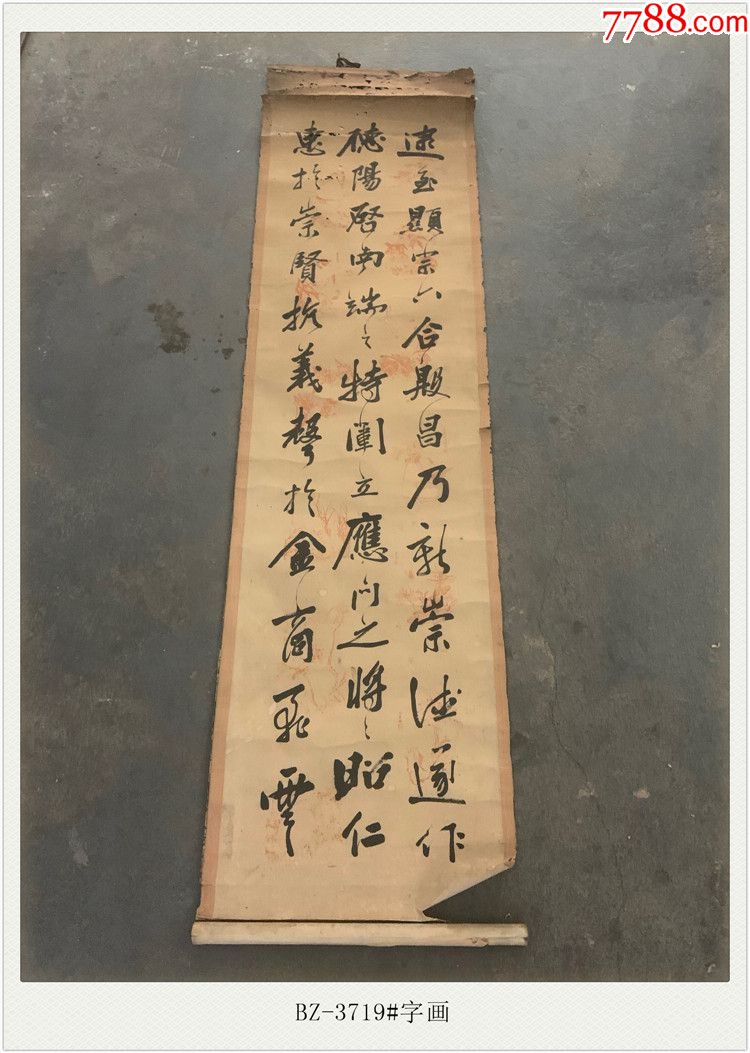 7788.com
逮至顯宗六合殷昌乃新崇德遂作
德陽啓南端之特闈立應門之將〻昭仁
惠於崇賢抗義聲於金商飛雲
BZ-3719#字画